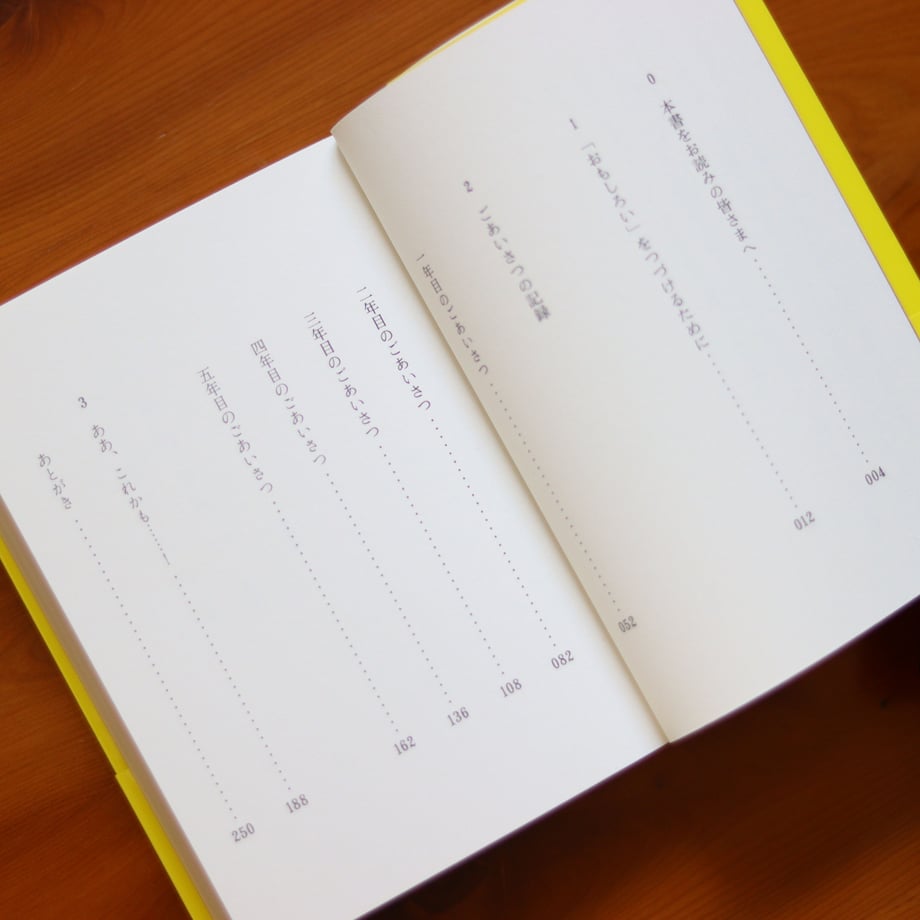 0 本書をお読みの皆さまへ………004
1 「おもしろい」をつづけるために………012
2 ごあいさつの記録
一年目のごあいさつ………052
二年目のごあいさつ………082
三年目のごあいさつ………108
四年目のごあいさつ………136
五年目のごあいさつ………162
3 ああ、これかも……！………188
あとがき………250